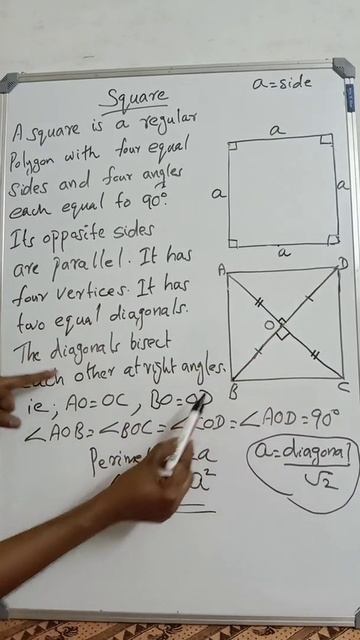 Square
a = side
A square is a regular
Polygon with four equal
sides and four angles
each equal to 90°.
Its opposite sides
are parallel. It has
four vertices. It has
two equal diagonals.
The diagonals bisect
each other at right angles.
ie; AO=OC, BO=OD
∠AOB=∠BOC=∠COD=∠AOD=90°
a
a
a
a
A
D
O
B
C
a
a²
a = diagonal
√2